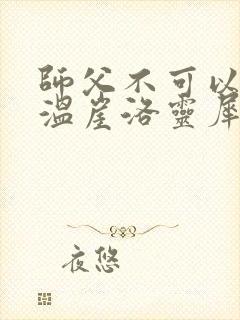 師父不可以
溫崖洛靈犀
夜悠